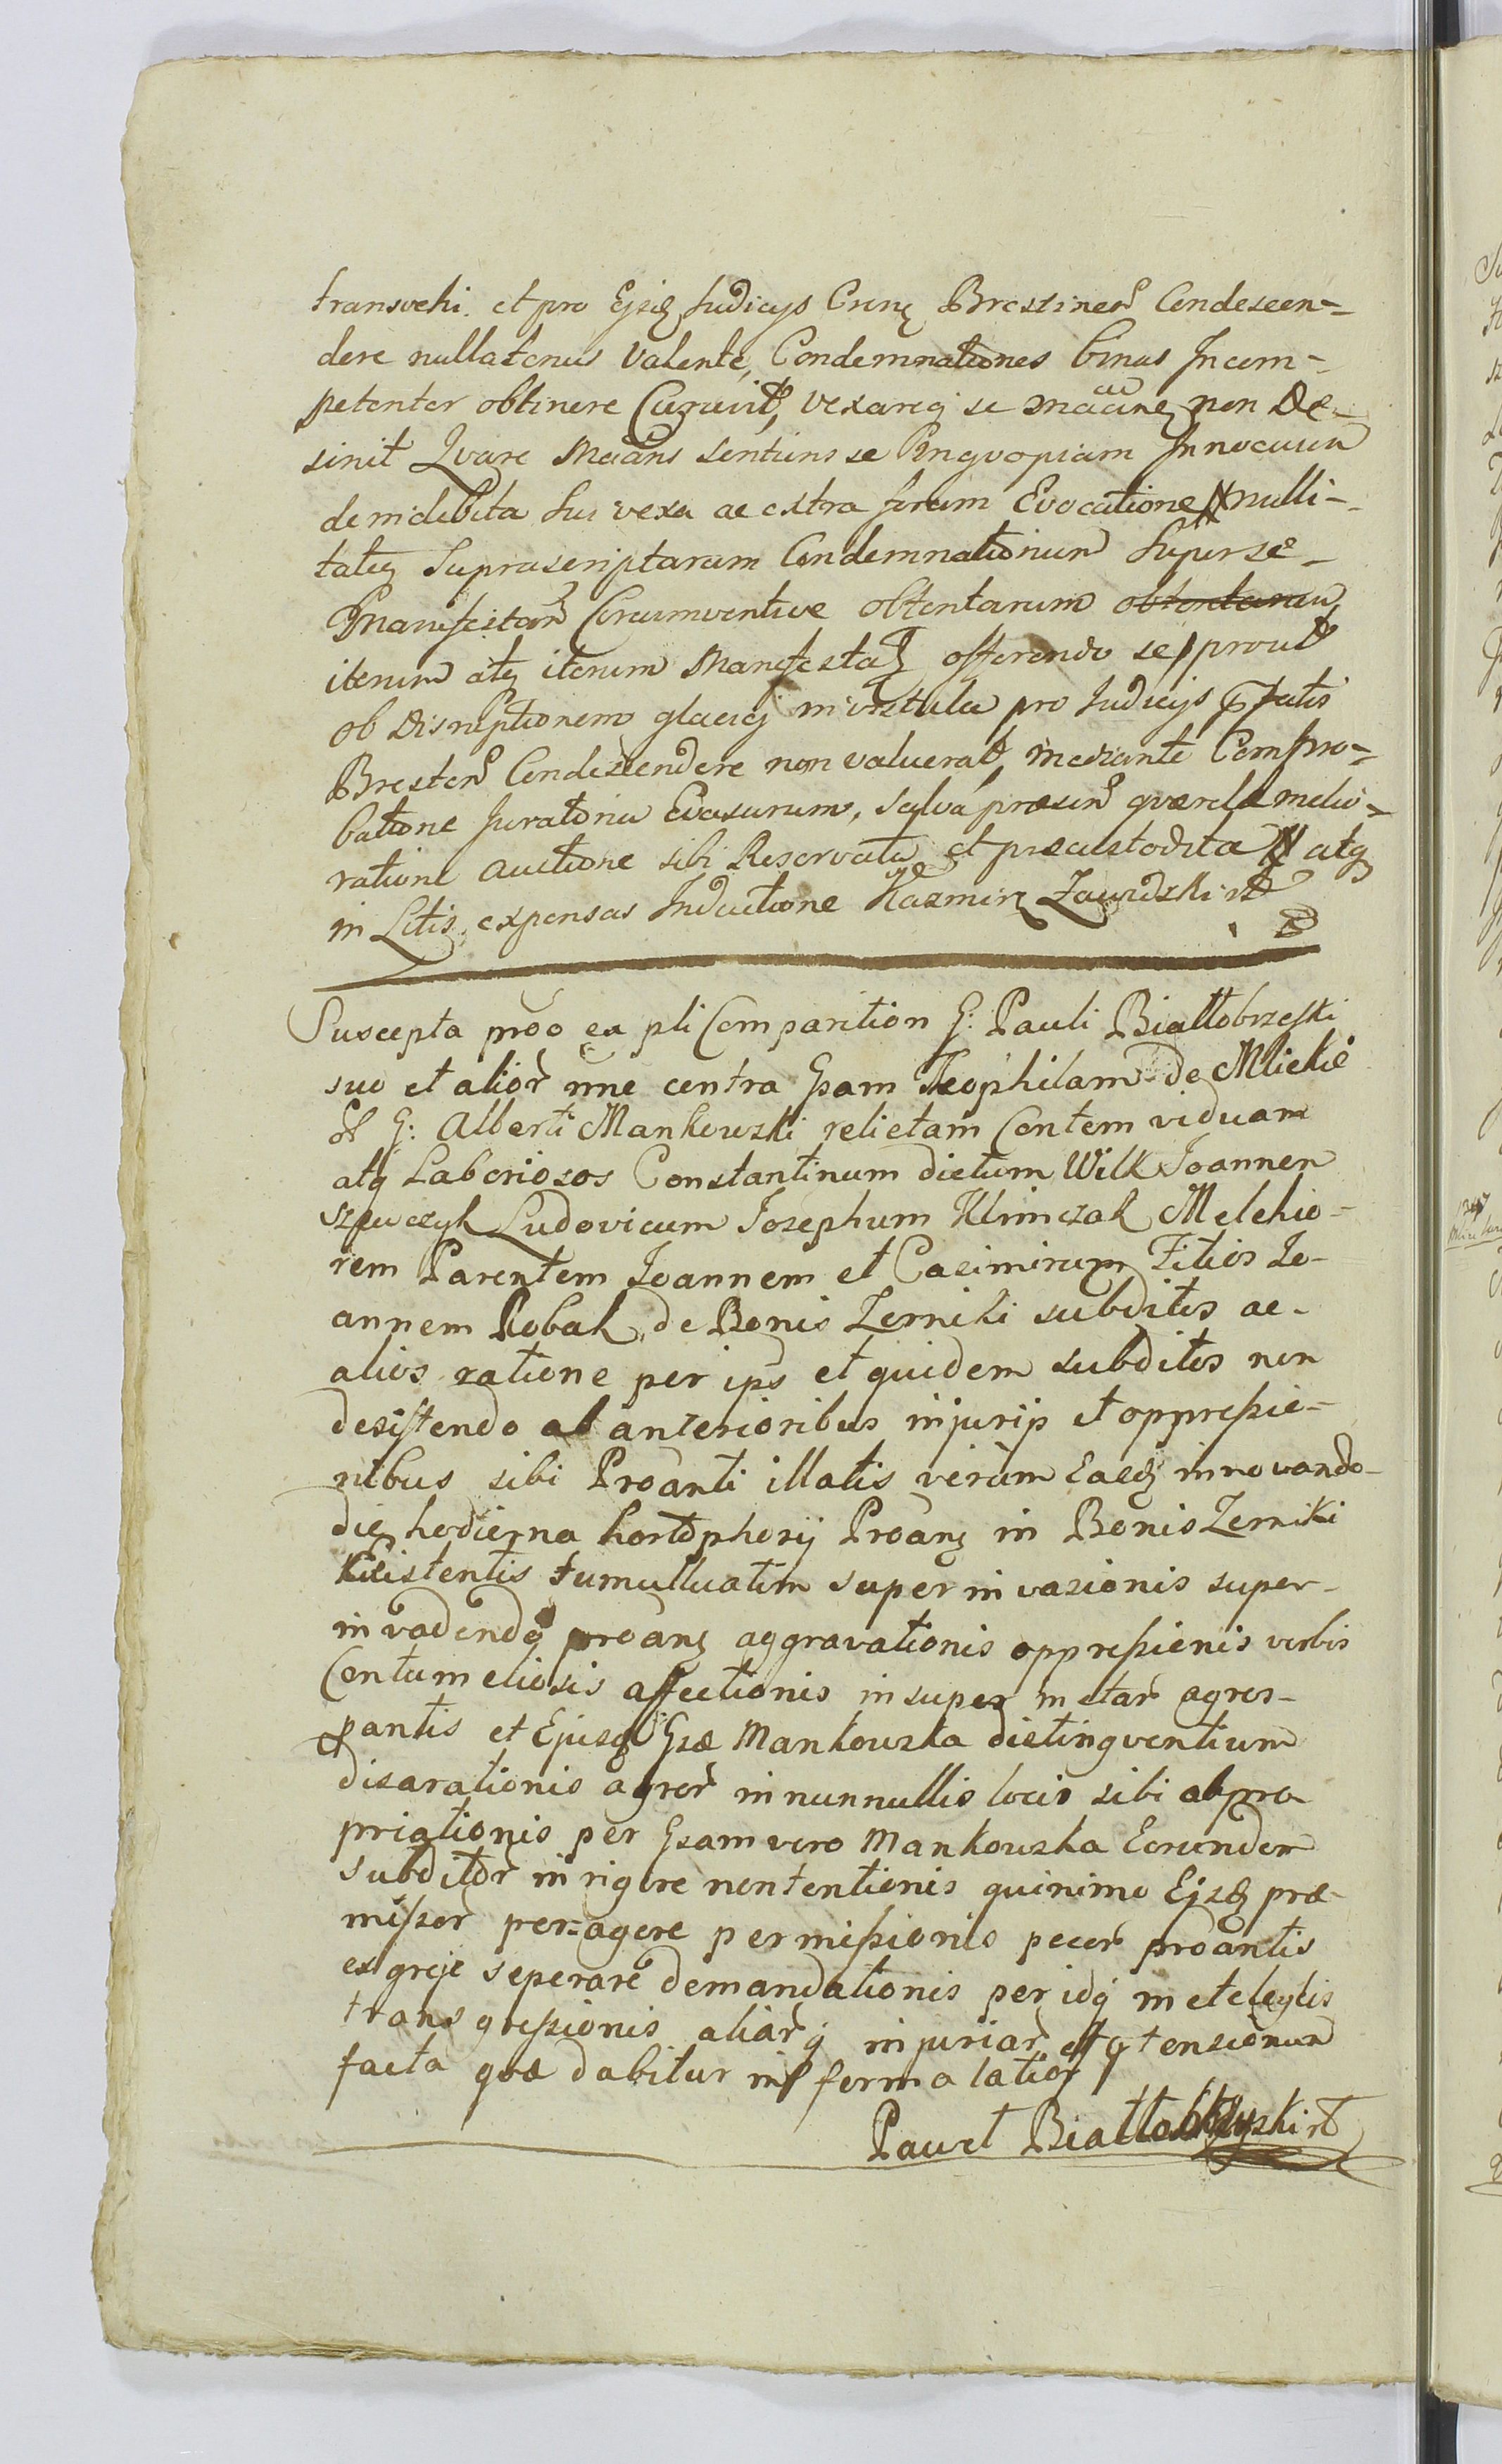 transvehi et pro Ejsdē Judicys Cune Brestinen̄ Condescen-
dere nullatenus Valente, Condemnationes binas Incom-
petenter obtinere Curavit, vexareq se non De-
sinit Qvare Māans sentiens se Innocuum
de indebita sui vexa ac extra forum Evocatione nulli-
tateq Suprascriptarum Condemnationum Super se
Manifestan̄ Circumventive obtentarum obtentarum
iterum atq iterum Manifestat offerendo se prout
ob Disruptionem glaciej in vistula pro Judicys
Bresten̄ Condescendere non valuerat, mediante Compro-
batione Juratoria Evasurum, salva præsen̄ qværelæ melio-
ratione auctione sibi Reservata et præcustodita atq
in Litis expensas Inductione Kazmirz Zawidzki

Suscepta prōo ex pli Comparition G: Pauli Białłobrzeski
suo et alior̄ nne contra Gsam Teophilam de Mlickie
ol G: Alberti Mankowski relictam Contem viduam
atq Laboriosos Constantinum dictum Wilk Joannem
Szewczyk Ludovicum Josephum Klimczak Melchio-
rem Parentem Joannem et Casimirum Filios Jo-
annem Robak de Bonis Zerniki subditos ac
alios ratione per ips̄ et quidem subditos non
desistendo ab anterioribus injurijs et oppressio-
nibus sibi Proanti illatis verum Easdē innovando
die hodierna hortophorij Proanē in Bonis Zerniki
Existentis tumultuatim super invasionis super-
invadendo proanē aggravationis oppressionis verbis
Contumeliosis affectionis insuper metar̄ agros
pantis et Ejusdē Gsæ Mankowska distingventium
disarationis agror̄ in nunnullis locis sibi abpro
priationis per Gsam vero Mankowska Eorundem
subditor̄ in rigore nontentionis quinimo Ejsdē præ-
missor̄ per=agere permissionis pecor̄ proantis
ex greje seperare demandationis per idq metelegis
transgressionis aliar̄q injuriar̄ et ꝑtensionum
facta qvæ dabitur in forma latior
Paweł Białłobrzyski